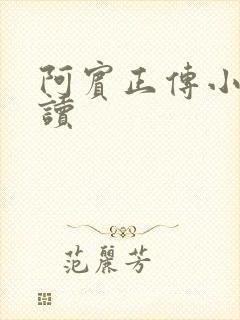 阿賓正傳小
讀
范麗芳